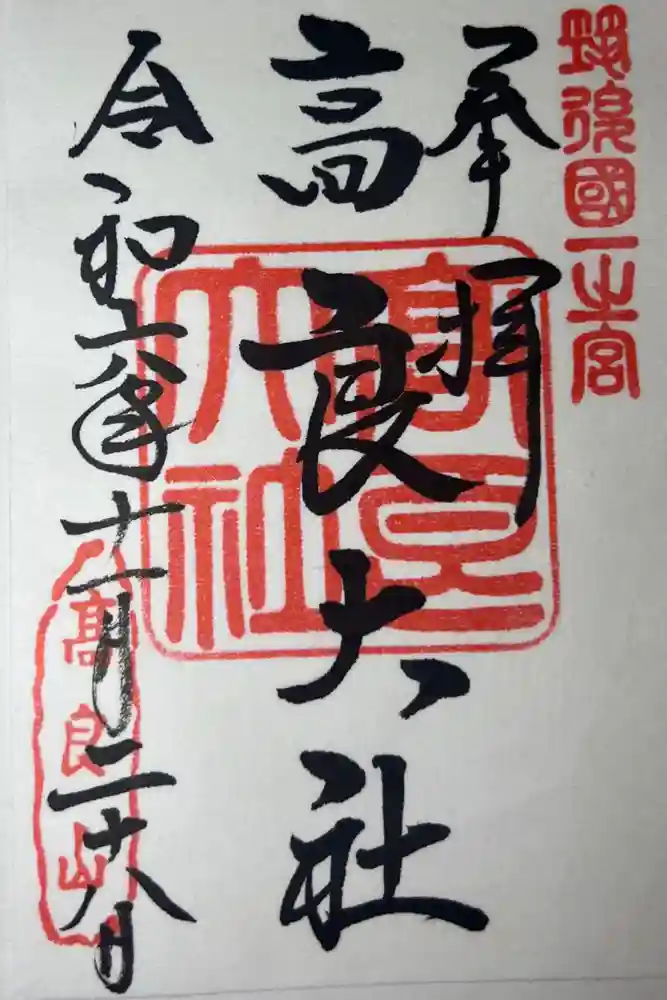 筑後國一之宮
奉拝
高良大社
高良
大社
令和六年十一月二十八日
髙良山